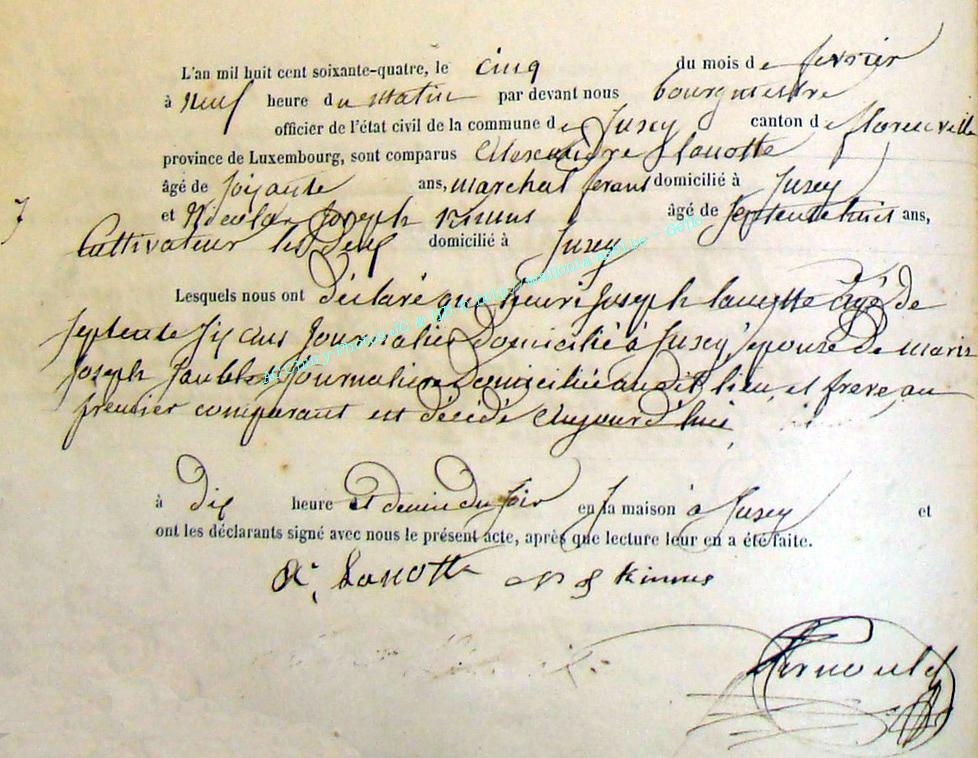 L'an mil huit cent soixante-quatre, le cinq du mois de fevrier
à neuf heure du matin par devant nous bourgmestre
officier de l'état civil de la commune de Jusey canton de florenville
province de Luxembourg, sont comparus Alexandre lanotte
âgé de soixante ans, marchal ferant domicilié à Jusey
et Nicolas Joseph âgé de septente huit ans,
Cultivateur les deux domicilié à Jusey
Lesquels nous ont déclaré que henri Joseph lanotte âgé de
septente six ans Journalier domicilié à Jusey epouse de marie
Joseph Journaliere domiciliée audit lieu, et frere, au
premier comparant est décédé aujourd'hui
à dix heure et demie du soir en sa maison à Jusey et
ont les déclarants signé avec nous le présent acte, après que lecture leur en a été faite.
Ax Lanotte